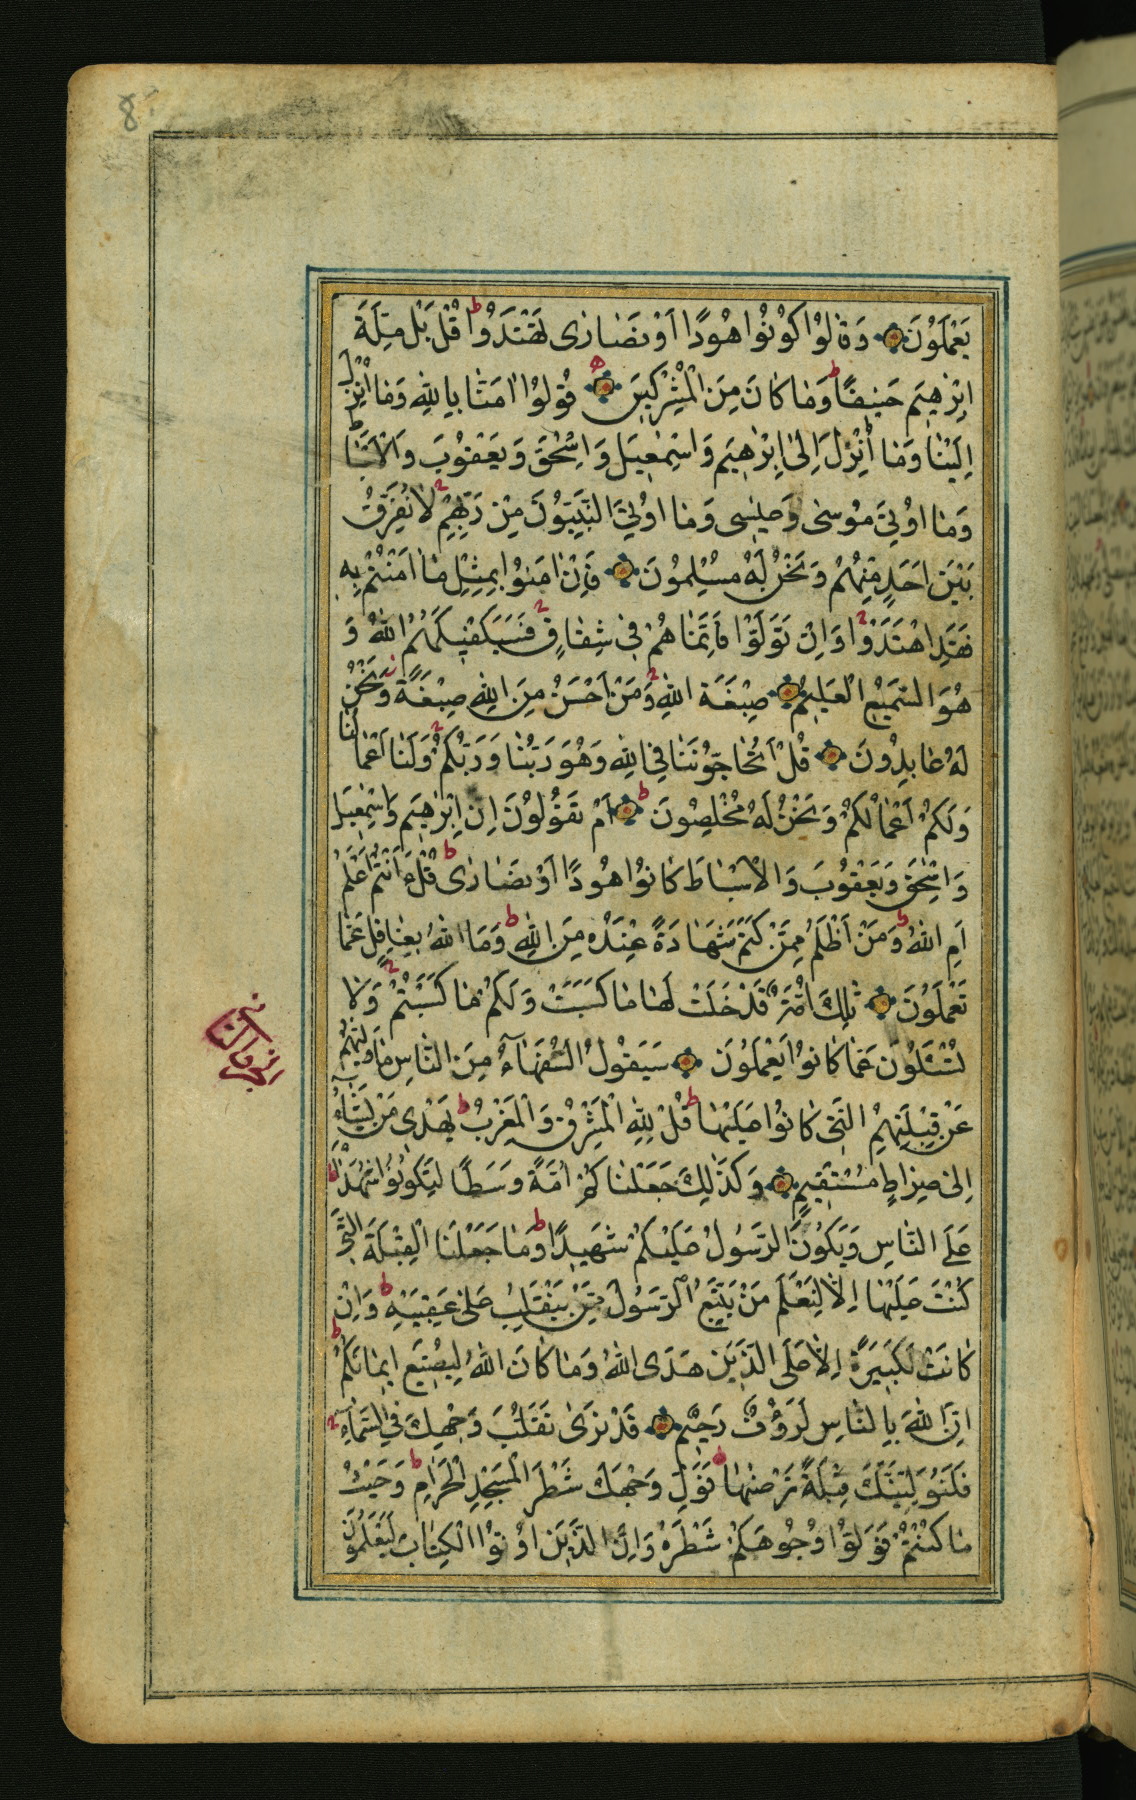 8
يَعْمَلُونَ وَقَالُوا كُونُوا هُودًا اَوْ نَصَارٰى تَهْتَدُوا ط قُلْ بَلْ مِلَّةَ
اِبْرٰهِيمَ حَنِيفًا ط وَمَا كَانَ مِنَ الْمُشْرِكِينَ ه قُولُوا اٰمَنَّا بِاللّٰهِ وَمَا اُنْزِلَ
اِلَيْنَا وَمَا اُنْزِلَ اِلٰى اِبْرٰهِيمَ وَاِسْمٰعِيلَ وَاِسْحٰقَ وَيَعْقُوبَ وَالْاَسْبَاطِ
وَمَا اُوتِيَ مُوسٰى وَعِيسٰى وَمَا اُوتِيَ النَّبِيُّونَ مِنْ رَبِّهِمْ لَا نُفَرِّقُ
بَيْنَ اَحَدٍ مِنْهُمْ وَنَحْنُ لَهُ مُسْلِمُونَ فَاِنْ اٰمَنُوا بِمِثْلِ مَا اٰمَنْتُمْ بِهِ
فَقَدِ اهْتَدَوْا وَاِنْ تَوَلَّوْا فَاِنَّمَا هُمْ فِي شِقَاقٍ فَسَيَكْفِيكَهُمُ اللّٰهُ وَ
هُوَ السَّمِيعُ الْعَلِيمُ صِبْغَةَ اللّٰهِ وَمَنْ اَحْسَنُ مِنَ اللّٰهِ صِبْغَةً وَنَحْنُ
لَهُ عَابِدُونَ قُلْ اَتُحَاجُّونَنَا فِي اللّٰهِ وَهُوَ رَبُّنَا وَرَبُّكُمْ وَلَنَا اَعْمَالُنَا
وَلَكُمْ اَعْمَالُكُمْ وَنَحْنُ لَهُ مُخْلِصُونَ ط اَمْ تَقُولُونَ اِنَّ اِبْرٰهِيمَ وَاِسْمٰعِيلَ
وَاِسْحٰقَ وَيَعْقُوبَ وَالْاَسْبَاطَ كَانُوا هُودًا اَوْ نَصَارٰى ط قُلْ ءَاَنْتُمْ اَعْلَمُ
اَمِ اللّٰهُ ط وَمَنْ اَظْلَمُ مِمَّنْ كَتَمَ شَهَادَةً عِنْدَهُ مِنَ اللّٰهِ ط وَمَا اللّٰهُ بِغَافِلٍ عَمَّا
تَعْمَلُونَ تِلْكَ اُمَّةٌ قَدْ خَلَتْ لَهَا مَا كَسَبَتْ وَلَكُمْ مَا كَسَبْتُمْ وَلَا
تُسْئَلُونَ عَمَّا كَانُوا يَعْمَلُونَ سَيَقُولُ السُّفَهَآءُ مِنَ النَّاسِ مَا وَلّٰىهُمْ
عَنْ قِبْلَتِهِمُ الَّتِي كَانُوا عَلَيْهَا ط قُلْ لِلّٰهِ الْمَشْرِقُ وَالْمَغْرِبُ ط يَهْدِي مَنْ يَشَآءُ
اِلٰى صِرَاطٍ مُسْتَقِيمٍ وَكَذٰلِكَ جَعَلْنَاكُمْ اُمَّةً وَسَطًا لِتَكُونُوا شُهَدَآءَ
عَلَى النَّاسِ وَيَكُونَ الرَّسُولُ عَلَيْكُمْ شَهِيدًا ط وَمَا جَعَلْنَا الْقِبْلَةَ الَّتِي
كُنْتَ عَلَيْهَا اِلَّا لِنَعْلَمَ مَنْ يَتَّبِعُ الرَّسُولَ مِمَّنْ يَنْقَلِبُ عَلٰى عَقِبَيْهِ ط وَاِنْ
كَانَتْ لَكَبِيرَةً اِلَّا عَلَى الَّذِينَ هَدَى اللّٰهُ وَمَا كَانَ اللّٰهُ لِيُضِيعَ اِيمَانَكُمْ ط
اِنَّ اللّٰهَ بِالنَّاسِ لَرَؤُفٌ رَحِيمٌ قَدْ نَرٰى تَقَلُّبَ وَجْهِكَ فِي السَّمَآءِ
فَلَنُوَلِّيَنَّكَ قِبْلَةً تَرْضٰىهَا ط فَوَلِّ وَجْهَكَ شَطْرَ الْمَسْجِدِ الْحَرَامِ ط وَحَيْثُ
مَا كُنْتُمْ فَوَلُّوا وُجُوهَكُمْ شَطْرَهُ وَاِنَّ الَّذِينَ اُوتُوا الْكِتَابَ لَيَعْلَمُونَ
الجزو الثاني